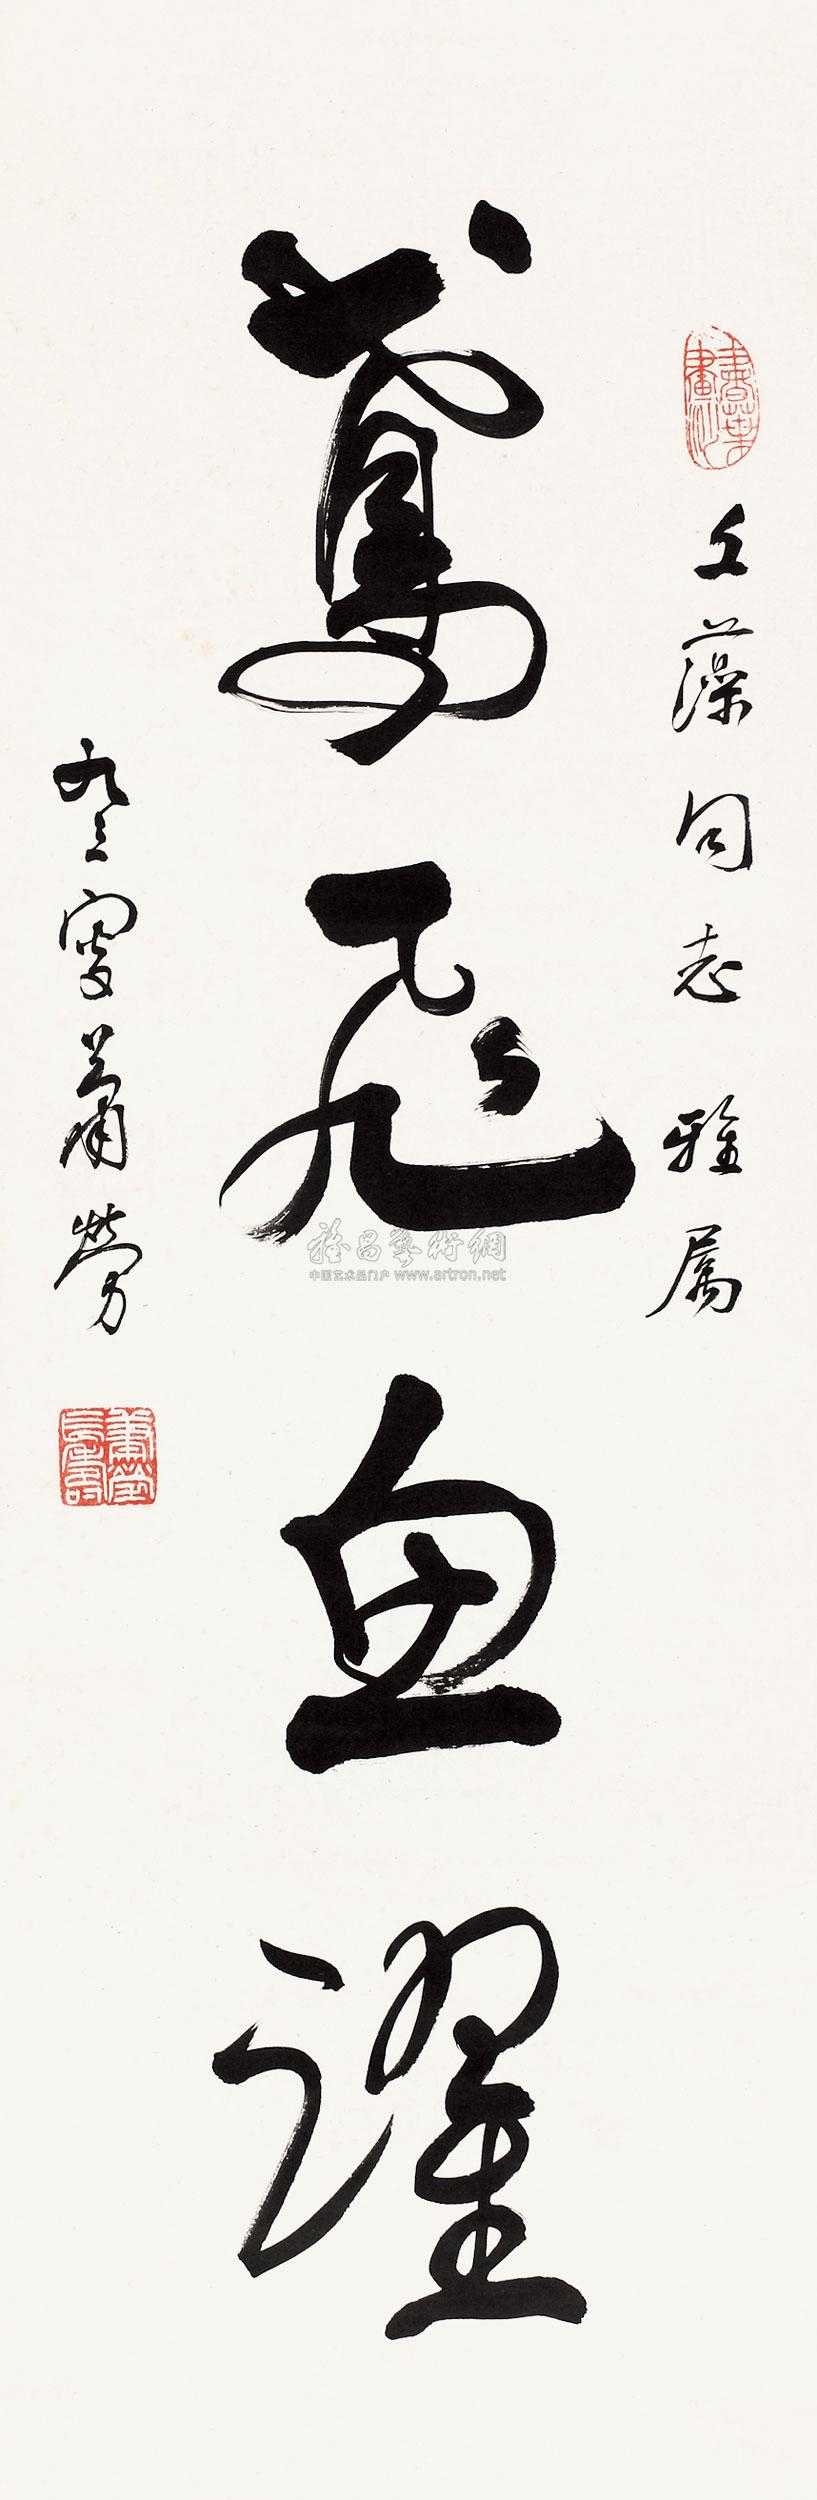 文藻同志雅属
鸢飞鱼躍
九三叟萧劳
雅昌藝術網
中国艺术品门户 www.artron.net